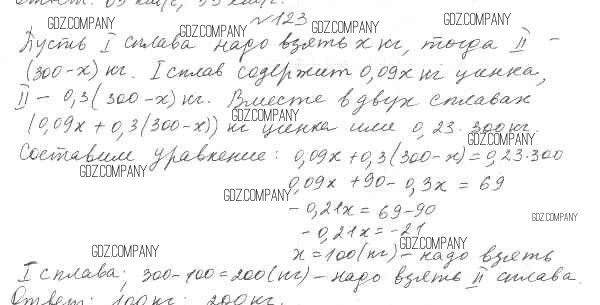 №123
GDZ.COMPANY GDZ.COMPANY GDZ.COMPANY GDZ.COMPANY
Пусть I сплава надо взять x кг, тогда II –
(300-x) кг. I сплав содержит 0,09x кг цинка,
II – 0,3(300-x) кг. Вместе в двух сплавах
GDZ.COMPANY
(0,09x + 0,3(300-x)) кг цинка или 0,23·300 кг.
GDZ.COMPANY
Составим уравнение: 0,09x + 0,3(300-x) = 0,23·300
GDZ.COMPANY
0,09x + 90 - 0,3x = 69
GDZ.COMPANY
-0,21x = 69-90
GDZ.COMPANY
-0,21x = -21
GDZ.COMPANY GDZ.COMPANY
x = 100 (кг) – надо взять
I сплава; 300-100=200(кг) – надо взять II сплава.
Ответ: 100 кг; 200 кг.